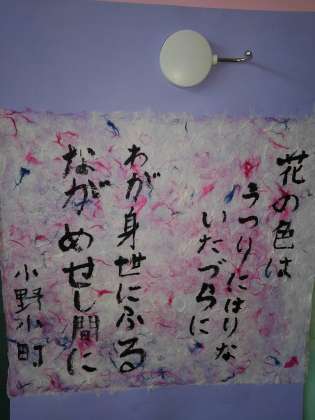 花の色は
うつりにけりな
いたづらに
わが身世にふる
ながめせし間に
小野小町